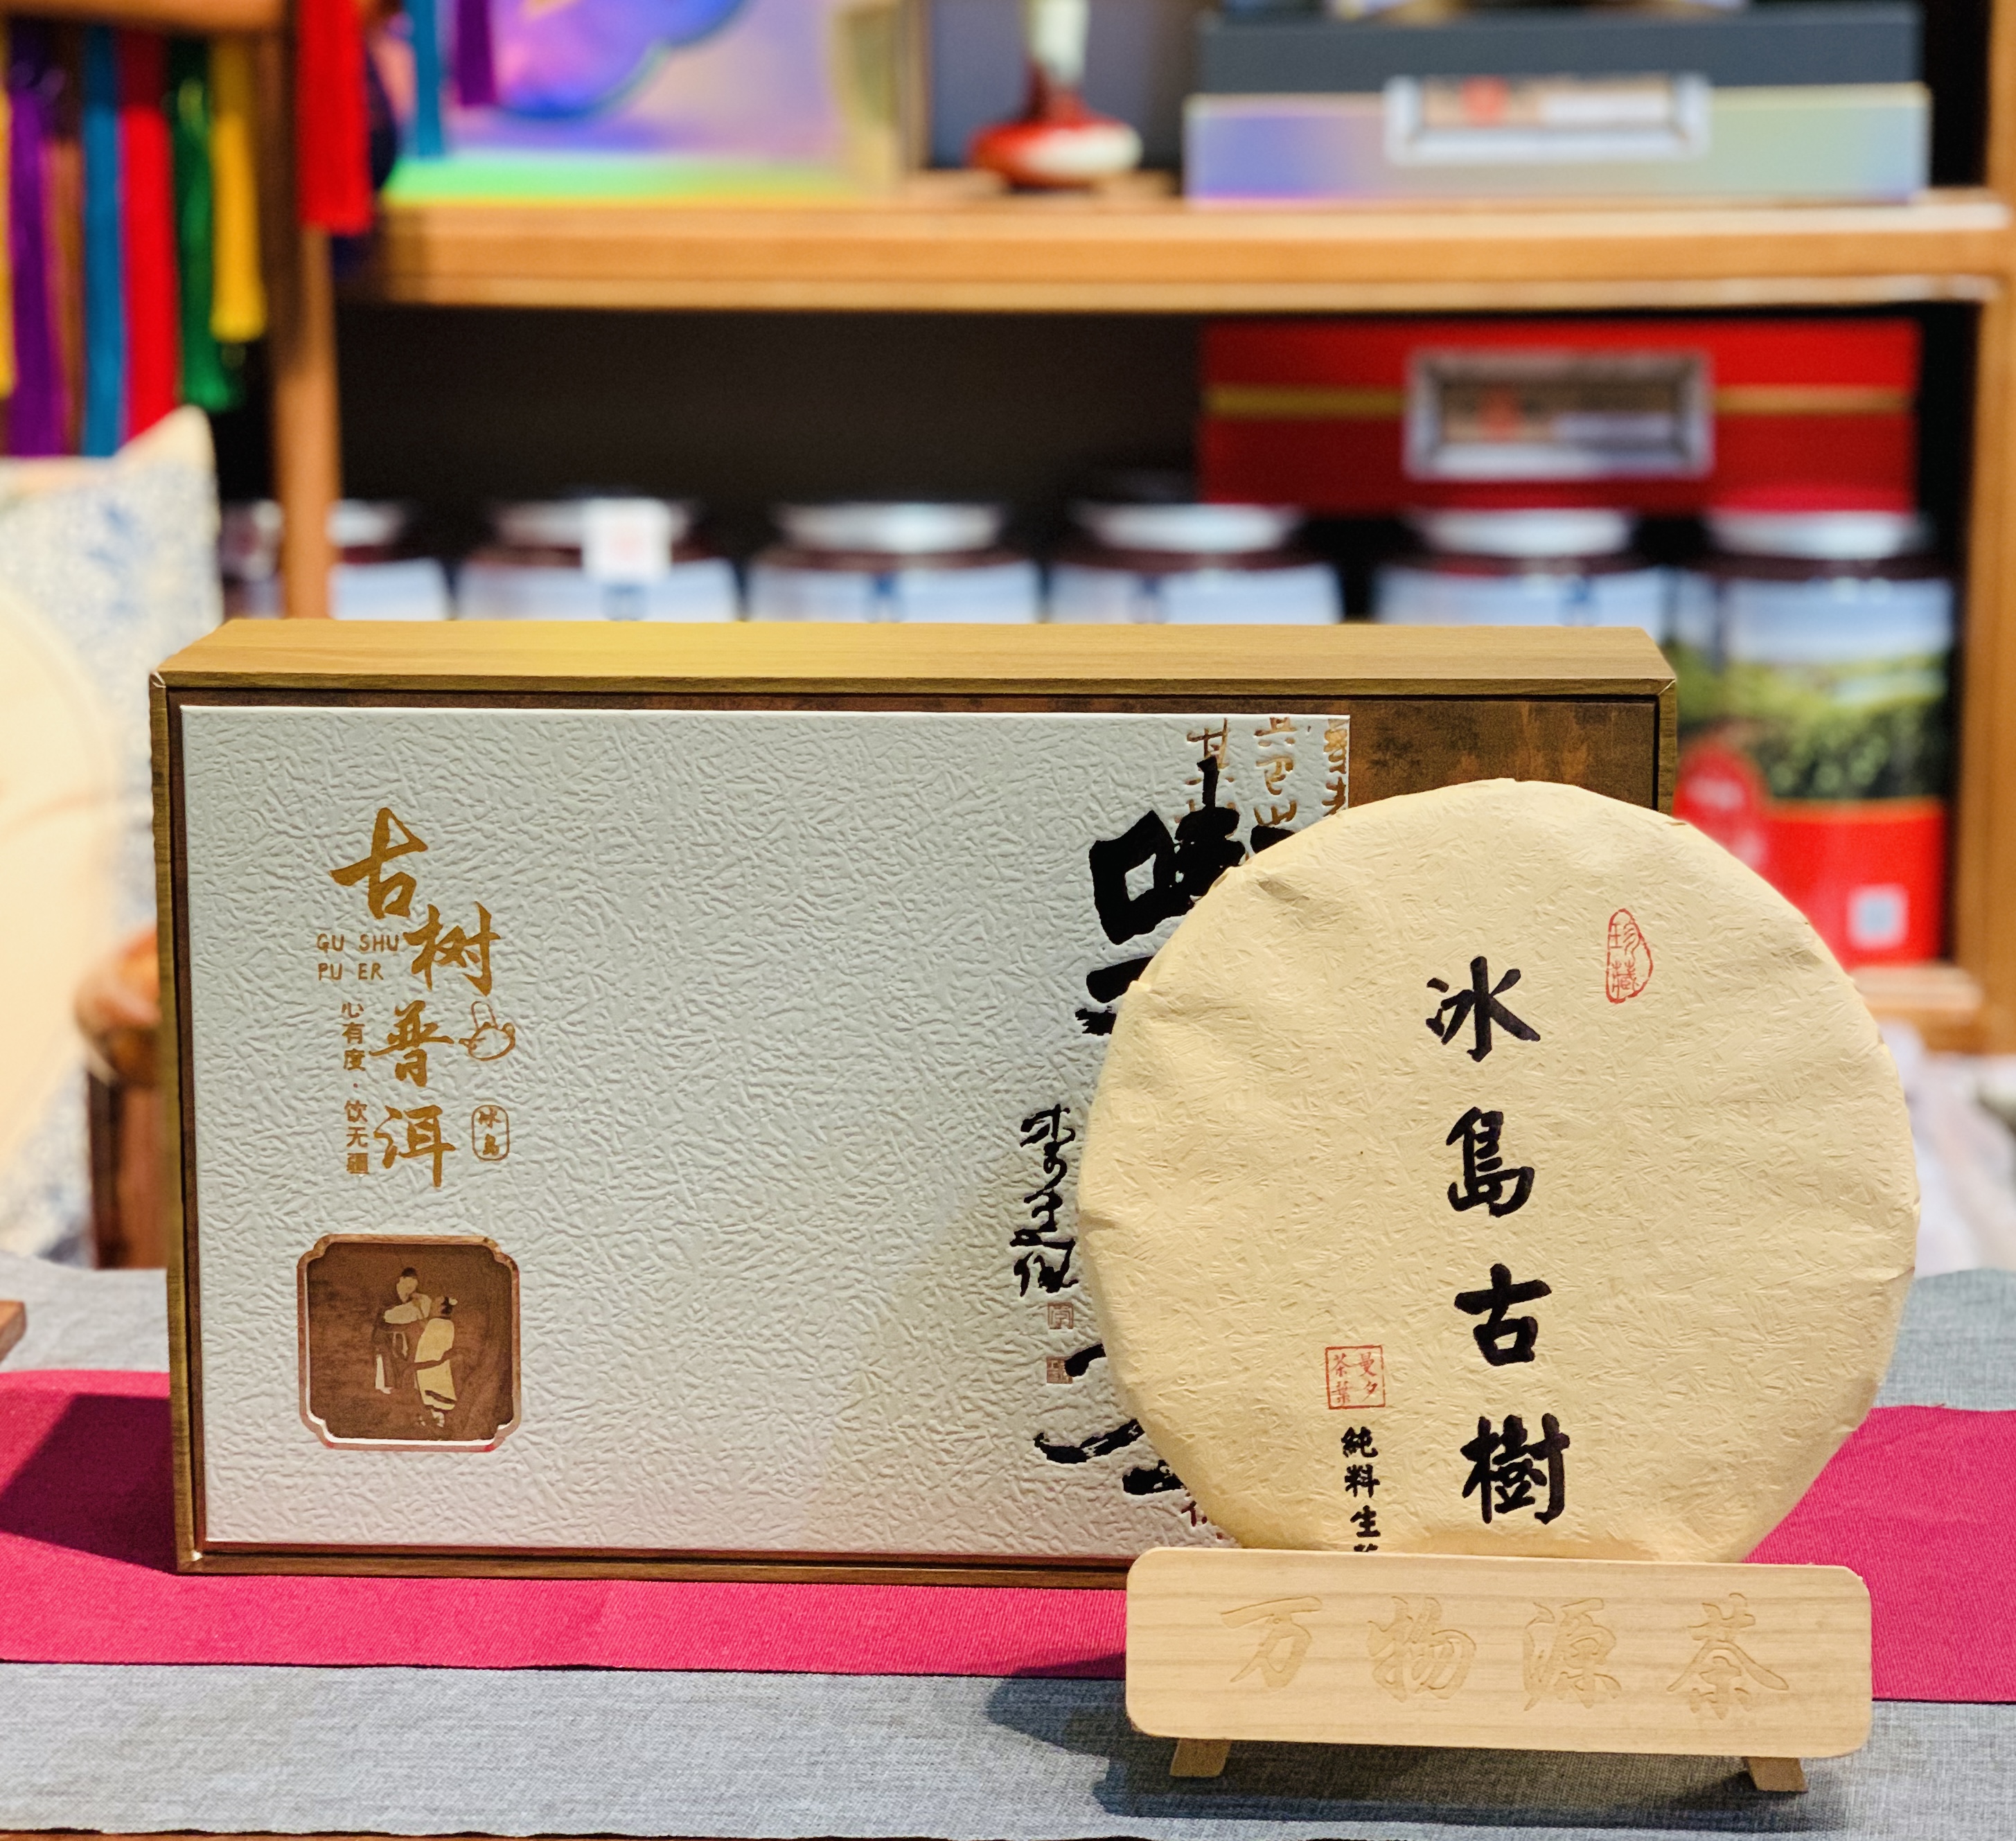 古树普洱
GU SHU
PU ER
心有度·饮无疆
冰島
味
珍藏
冰島古樹
曼夕
茶葉
純料生
万物源茶